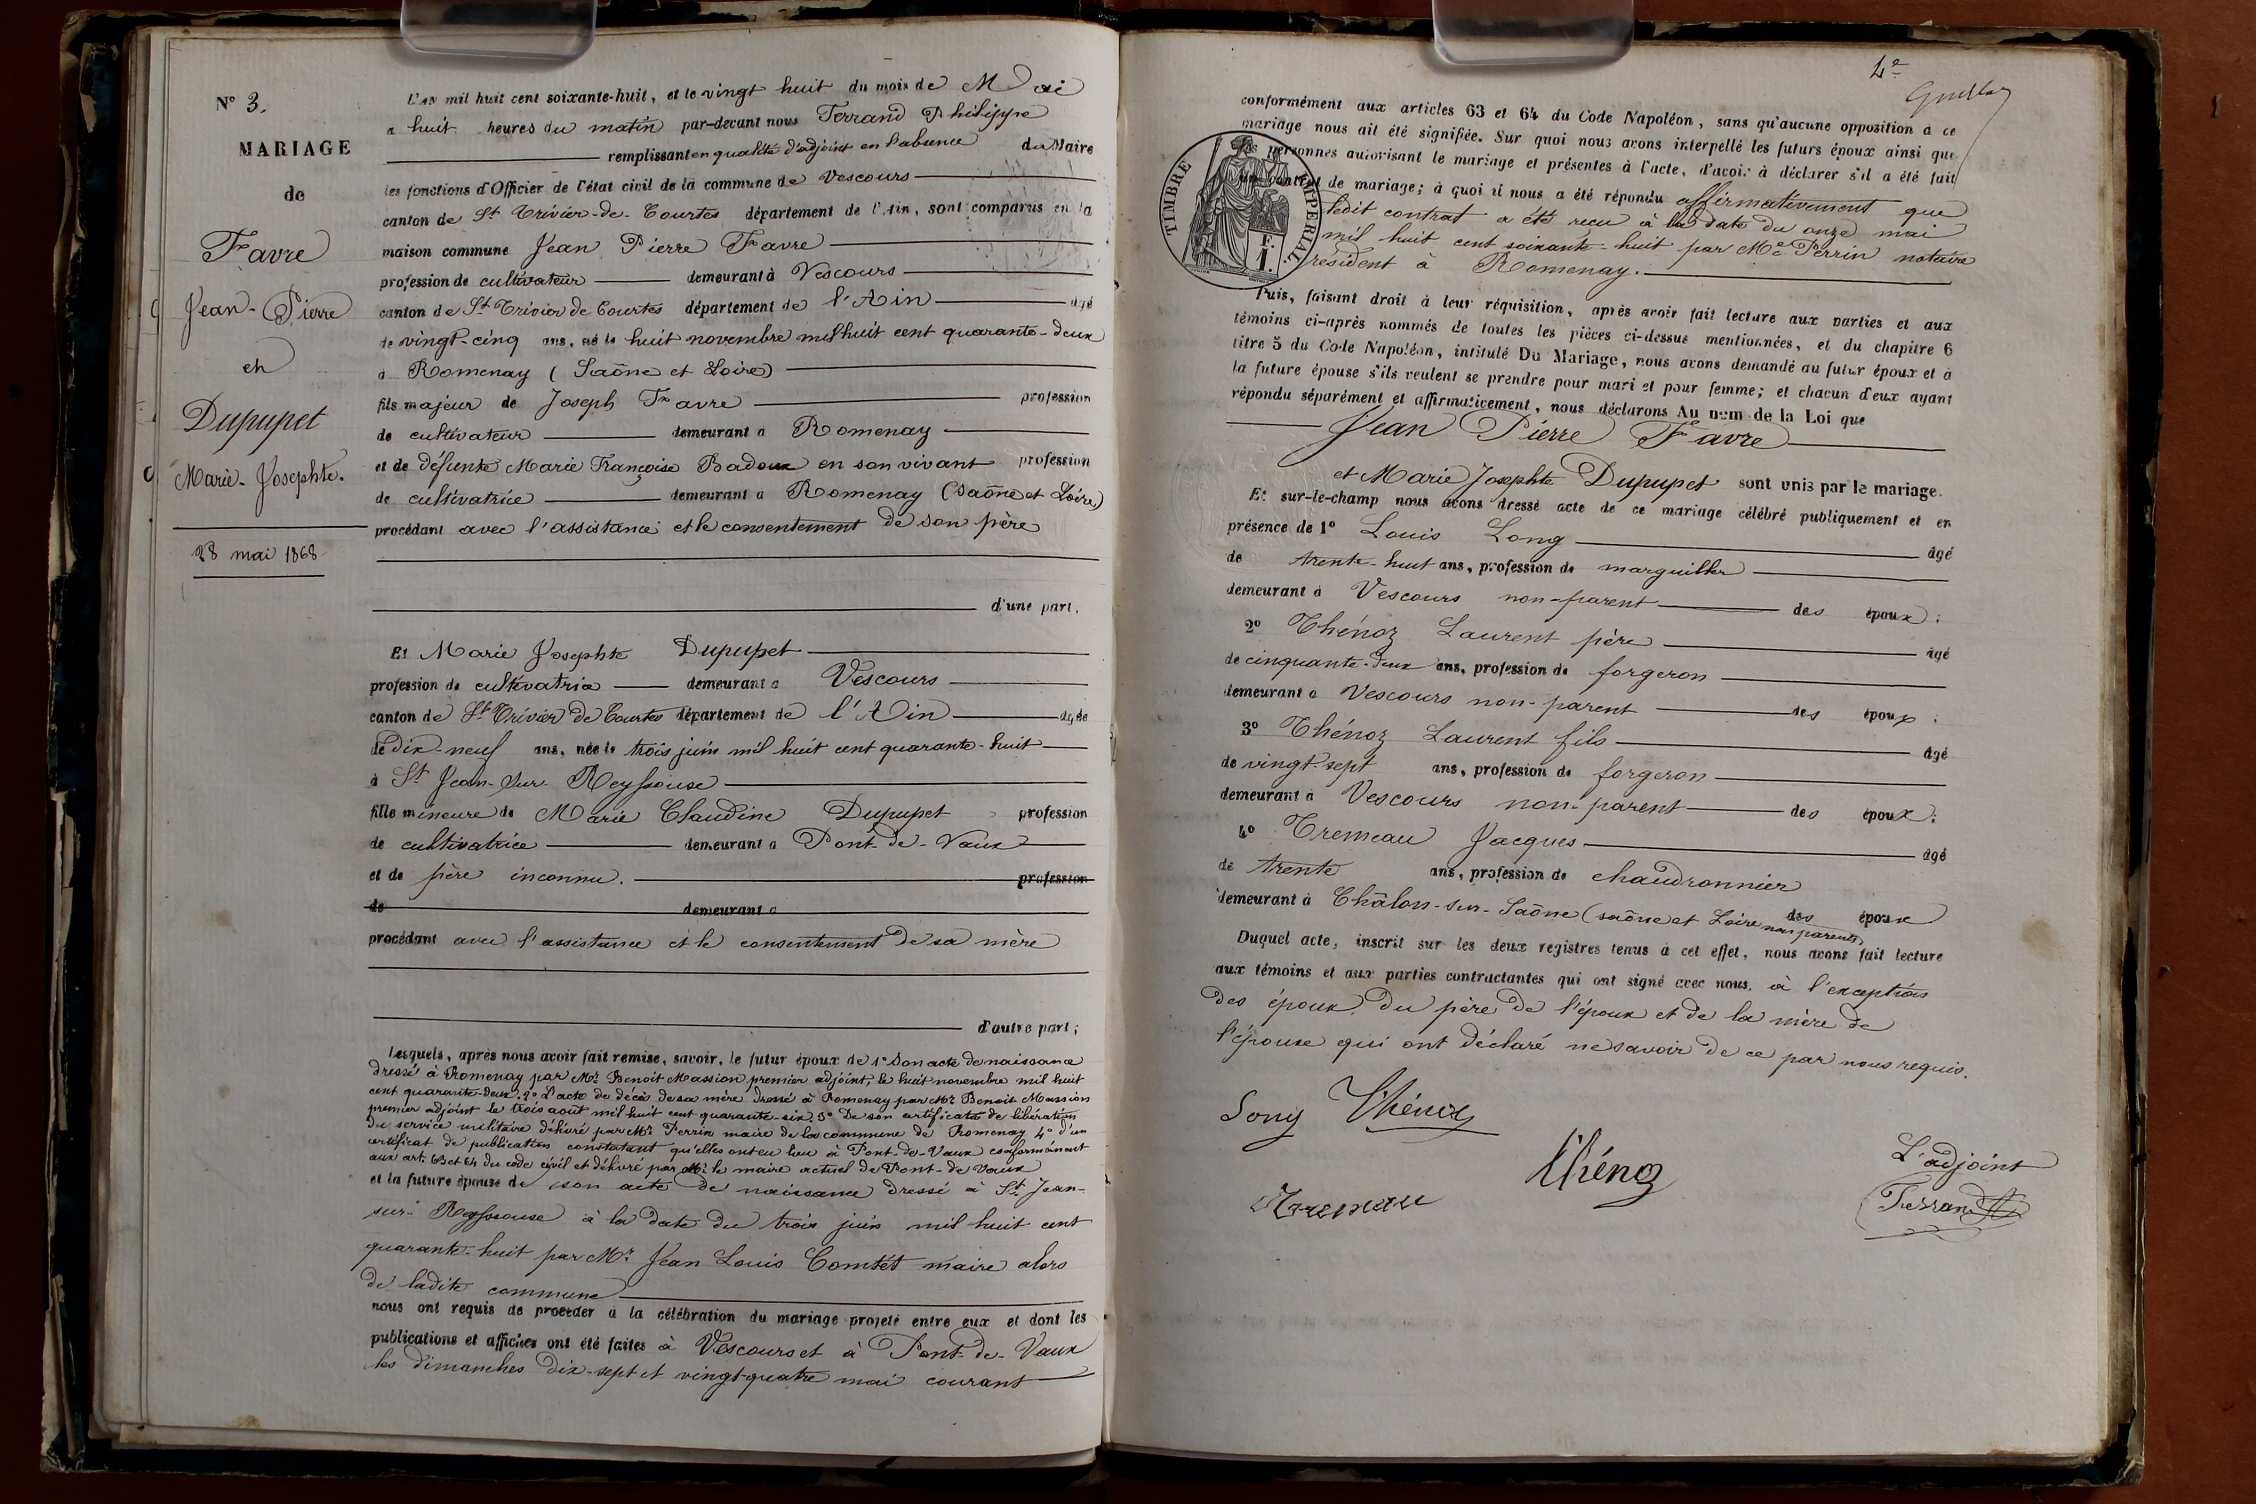 N° 3.
MARIAGE
de
Favre
Jean-Pierre
et
Dupupet
Marie-Josephte.
28 mai 1868
L'an mil huit cent soixante-huit, et le vingt huit du mois de Mai
a huit heures du matin par-devant nous Ferrand Philippe
remplissant en qualité d'adjoint en l'absence du Maire
les fonctions d'Officier de l'état civil de la commune de Vescours
canton de St Trivier-de-Courtes département de l'Ain, sont comparus en la
maison commune Jean Pierre Favre
profession de cultivateur demeurant à Vescours
canton de St Trivier de Courtes département de l'Ain agé
de vingt-cinq ans, né le huit novembre mil huit cent quarante-deux
à Romenay (Saône et Loire)
fils majeur de Joseph Favre profession
de cultivateur demeurant a Romenay
et de défunte Marie Françoise Badoux en son vivant profession
de cultivatrice demeurant a Romenay (Saône et Loire)
procédant avec l'assistance et le consentement de son père
d'une part.
Et Marie Josephte Dupupet
profession de cultivatrice demeurant a Vescours
canton de St Trivier de Courtes département de l'Ain agée
de dix-neuf ans, née le trois juin mil huit cent quarante-huit
à St Jean-sur-Reyssouse
fille mineure de Marie Claudine Dupupet profession
de cultivatrice demeurant a Pont-de-Vaux
et de père inconnu. profession
de demeurant a
procédant avec l'assistance et le consentement de sa mère
d'autre part;
Lesquels, après nous avoir fait remise, savoir, le futur époux de 1° Son acte de naissance
dressé à Romenay par Mr Benoit Massion premier adjoint, le huit novembre mil huit
cent quarante-deux, 2° L'acte de décès de sa mère dressé à Romenay par Mr Benoit Massion
premier adjoint le trois aout mil huit cent quarante-six, 3° De son certificat de libération
du service militaire délivré par Mr Perrin maire de la commune de Romenay 4° d'un
certificat de publication constatant qu'elles ont eu lieu à Pont-de-Vaux conformément
aux art. 63 et 64 du code civil et délivré par Mr le maire actuel de Pont-de-Vaux
et la future épouse de son acte de naissance dressé à St Jean-
sur-Reyssouse à la date du trois juin mil huit cent
quarante-huit par Mr Jean Louis Comtet maire alors
de ladite commune
nous ont requis de proceder a la célébration du mariage projeté entre eux et dont les
publications et affiches ont été faites à Vescours et à Pont-de-Vaux
les dimanches dix-sept et vingt-quatre mai courant
4e
conformément aux articles 63 et 64 du Code Napoléon, sans qu'aucune opposition à ce
mariage nous ait été signifiée. Sur quoi nous avons interpellé les futurs époux ainsi que
les personnes autorisant le mariage et présentes à l'acte, d'avoir à déclarer s'il a été fait
un contrat de mariage; à quoi il nous a été répondu affirmativement que
ledit contrat a été reçu à la date du onze mai
mil huit cent soixante-huit par Me Perrin notaire
résident à Romenay.
TIMBRE IMPERIAL
F.
1.
Puis, faisant droit à leur réquisition, après avoir fait lecture aux parties et aux
témoins ci-après nommés de toutes les pièces ci-dessus mentionnées, et du chapitre 6
titre 5 du Code Napoléon, intitulé Du Mariage, nous avons demandé au futur époux et à
la future épouse s'ils veulent se prendre pour mari et pour femme; et chacun d'eux ayant
répondu séparément et affirmativement, nous déclarons Au nom de la Loi que
Jean Pierre Favre
et Marie Josephte Dupupet sont unis par le mariage.
Et sur-le-champ nous avons dressé acte de ce mariage célébré publiquement et en
présence de 1° Louis Long âgé
de trente-huit ans, profession de marguiller
demeurant à Vescours non-parent des époux;
2° Thénoz Laurent père agé
de cinquante-deux ans, profession de forgeron
demeurant a Vescours non-parent des époux;
3° Thénoz Laurent fils agé
de vingt-sept ans, profession de forgeron
demeurant à Vescours non-parent des époux;
4° Tremeau Jacques agé
de trente ans, profession de chaudronnier
demeurant à Châlon-sur-Saône (saône et Loire non parents des époux
Duquel acte, inscrit sur les deux registres tenus à cet effet, nous avons fait lecture
aux témoins et aux parties contractantes qui ont signé avec nous, à l'exception
des époux, du père de l'époux et de la mère de
l'épouse qui ont déclaré ne savoir de ce par nous requis.
Long Thénoz
Thénoz
L'adjoint
Tremeau
Ferrand